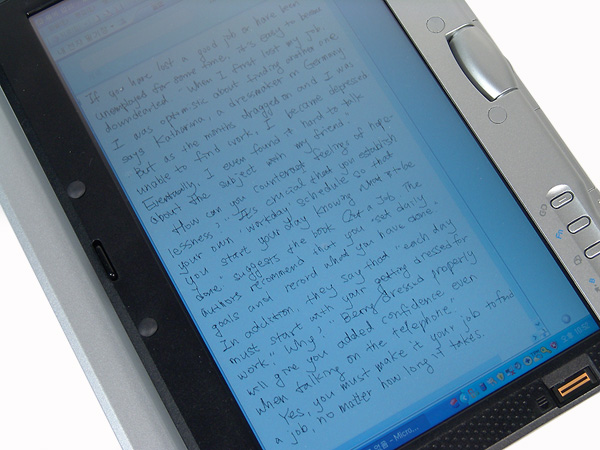 If you have lost a good job or have been
unemployed for some time, it's easy to become
downhearted. "When I first lost my job,
I was optimistic about finding another one,"
says Katharina, a dressmaker in Germany.
"But as the months dragged on and I was
unable to find work, I became depressed.
Eventually, I even found it hard to talk
about the subject with my friend."
How can you counteract feelings of hope-
lessness? "It's crucial that you establish
your own 'workday' schedule so that
you start your day knowing what to be
done," suggests the book Get a Job. The
authors recommend that you "set daily
goals and record what you have done."
In addition, they say that "each day
must start with your getting dressed for
work." Why? "Being dressed properly
will give you added confidence even
when talking on the telephone."
Yes, you must make it your job to find
a job, no matter how long it takes.
- Micro...